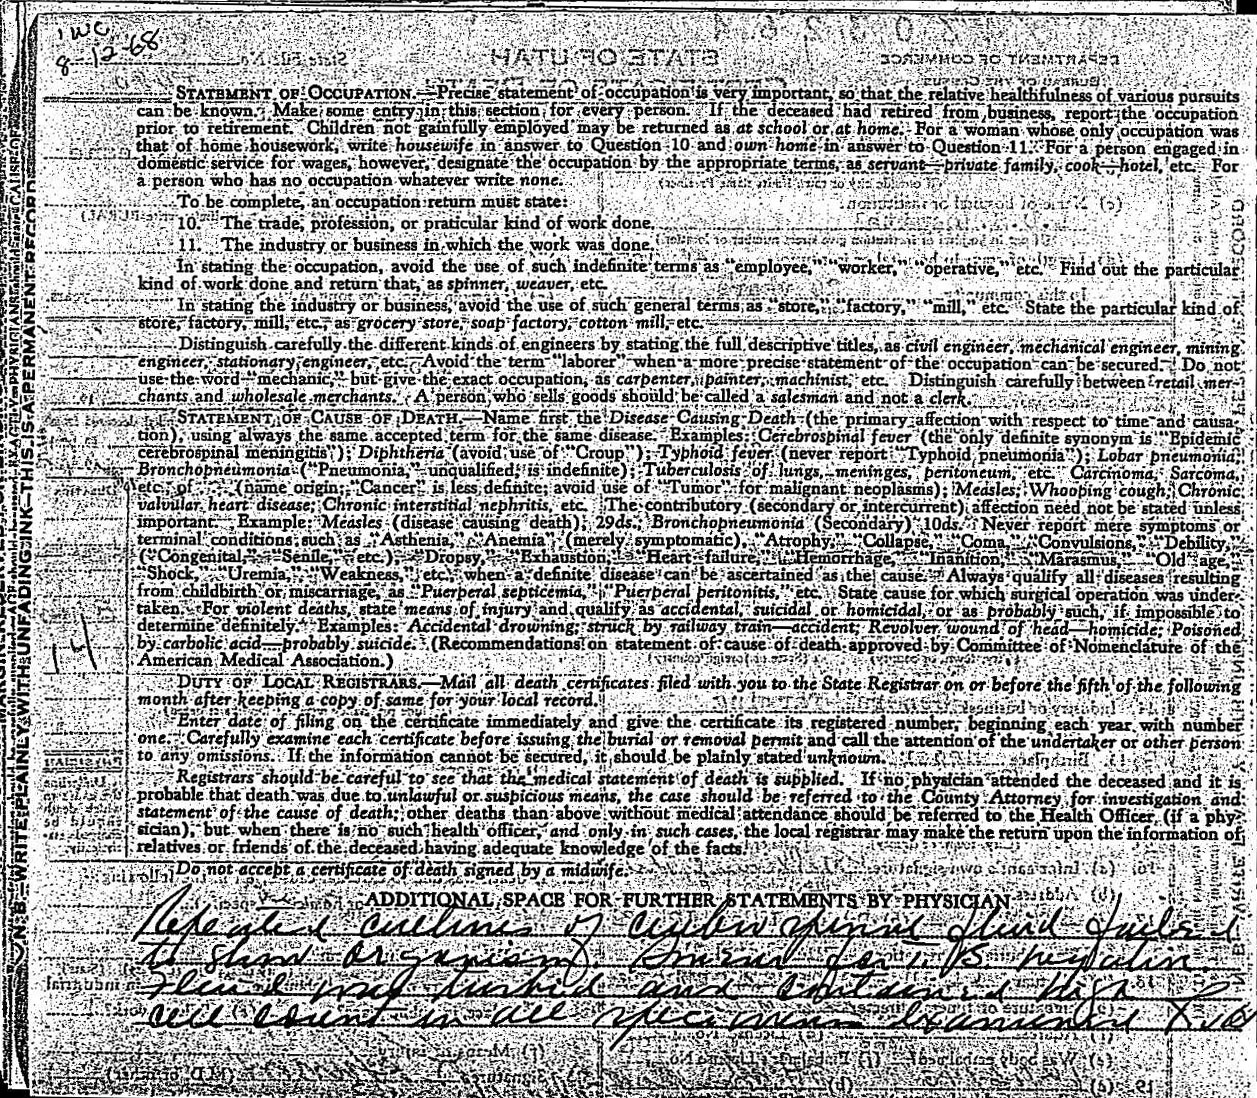 8-12-68
STATE OF UTAH
DEPARTMENT OF COMMERCE
BUREAU OF THE CENSUS
STATEMENT OF OCCUPATION.—Precise statement of occupation is very important, so that the relative healthfulness of various pursuits
can be known. Make some entry in this section for every person. If the deceased had retired from business, report the occupation
prior to retirement. Children not gainfully employed may be returned as at school or at home. For a woman whose only occupation was
that of home housework, write housewife in answer to Question 10 and own home in answer to Question 11. For a person engaged in
domestic service for wages, however, designate the occupation by the appropriate terms, as servant—private family, cook—hotel, etc. For
a person who has no occupation whatever write none.
To be complete, an occupation return must state:
10. The trade, profession, or praticular kind of work done.
11. The industry or business in which the work was done.
In stating the occupation, avoid the use of such indefinite terms as "employee," "worker," "operative," etc. Find out the particular
kind of work done and return that, as spinner, weaver, etc.
In stating the industry or business, avoid the use of such general terms as "store," "factory," "mill," etc. State the particular kind of
store, factory, mill, etc., as grocery store, soap factory, cotton mill, etc.
Distinguish carefully the different kinds of engineers by stating the full descriptive titles, as civil engineer, mechanical engineer, mining
engineer, stationary engineer, etc. Avoid the term "laborer" when a more precise statement of the occupation can be secured. Do not
use the word "mechanic," but give the exact occupation, as carpenter, painter, machinist, etc. Distinguish carefully between retail mer-
chants and wholesale merchants. A person who sells goods should be called a salesman and not a clerk.
STATEMENT OF CAUSE OF DEATH.—Name first the Disease Causing Death (the primary affection with respect to time and causa-
tion), using always the same accepted term for the same disease. Examples: Cerebrospinal fever (the only definite synonym is "Epidemic
cerebrospinal meningitis"); Diphtheria (avoid use of "Croup"); Typhoid fever (never report "Typhoid pneumonia"); Lobar pneumonia;
Bronchopneumonia ("Pneumonia," unqualified, is indefinite); Tuberculosis of lungs, meninges, peritoneum, etc. Carcinoma, Sarcoma,
etc. of ..... (name origin; "Cancer" is less definite; avoid use of "Tumor" for malignant neoplasms); Measles; Whooping cough; Chronic
valvular heart disease; Chronic interstitial nephritis, etc. The contributory (secondary or intercurrent) affection need not be stated unless
important. Example: Measles (disease causing death), 29ds.; Bronchopneumonia (Secondary), 10ds. Never report mere symptoms or
terminal conditions such as "Asthenia," "Anemia" (merely symptomatic), "Atrophy," "Collapse," "Coma," "Convulsions," "Debility,"
("Congenital," "Senile," etc.) "Dropsy," "Exhaustion," "Heart failure," "Hemorrhage," "Inanition," "Marasmus," "Old age,"
"Shock," "Uremia," "Weakness," etc., when a definite disease can be ascertained as the cause. Always qualify all diseases resulting
from childbirth or miscarriage, as "Puerperal septicemia," "Puerperal peritonitis," etc. State cause for which surgical operation was under-
taken. For violent deaths, state means of injury and qualify as accidental, suicidal or homicidal, or as probably such, if impossible to
determine definitely. Examples: Accidental drowning; struck by railway train—accident; Revolver wound of head—homicide; Poisoned
by carbolic acid—probably suicide. (Recommendations on statement of cause of death approved by Committee of Nomenclature of the
American Medical Association.)
14
DUTY OF LOCAL REGISTRARS.—Mail all death certificates filed with you to the State Registrar on or before the fifth of the following
month after keeping a copy of same for your local record.
Enter date of filing on the certificate immediately and give the certificate its registered number, beginning each year with number
one. Carefully examine each certificate before issuing the burial or removal permit and call the attention of the undertaker or other person
to any omissions. If the information cannot be secured, it should be plainly stated unknown.
Registrars should be careful to see that the medical statement of death is supplied. If no physician attended the deceased and it is
probable that death was due to unlawful or suspicious means, the case should be referred to the County Attorney for investigation and
statement of the cause of death; other deaths than above without medical attendance should be referred to the Health Officer (if a phy-
sician), but when there is no such health officer, and only in such cases, the local registrar may make the return upon the information of
relatives or friends of the deceased having adequate knowledge of the facts.
Do not accept a certificate of death signed by a midwife.
ADDITIONAL SPACE FOR FURTHER STATEMENTS BY PHYSICIAN
Repeated cultures of cerebro spinal fluid failed
to show organism. Smears for T.B. negative.
Fluid was turbid and contained high
cell count in all specimens examined
N. B.—WRITE PLAINLY WITH UNFADING INK—THIS IS A PERMANENT RECORD